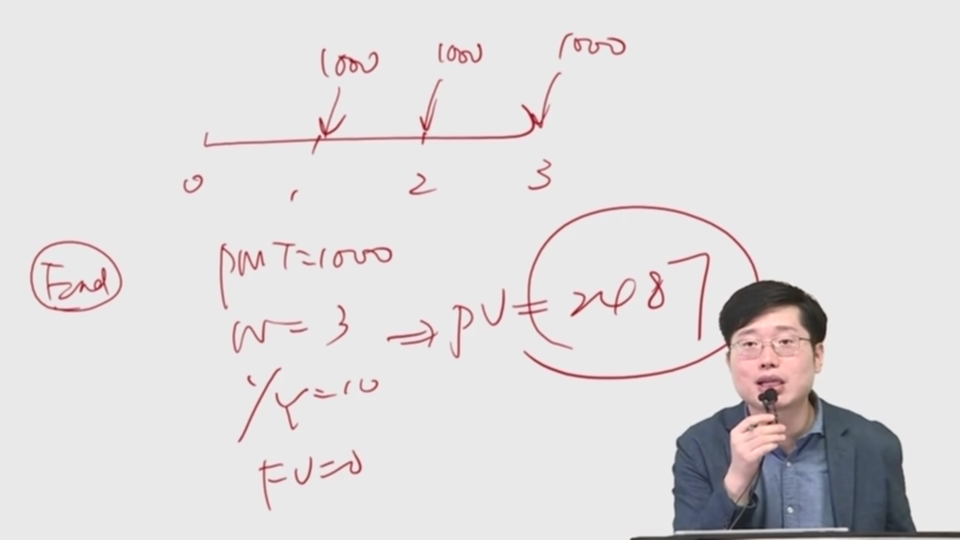 1000 1000 1000
0 1 2 3
End
PMT=1000
N=3 ⇒ PV=2487
I/Y=10
FV=0